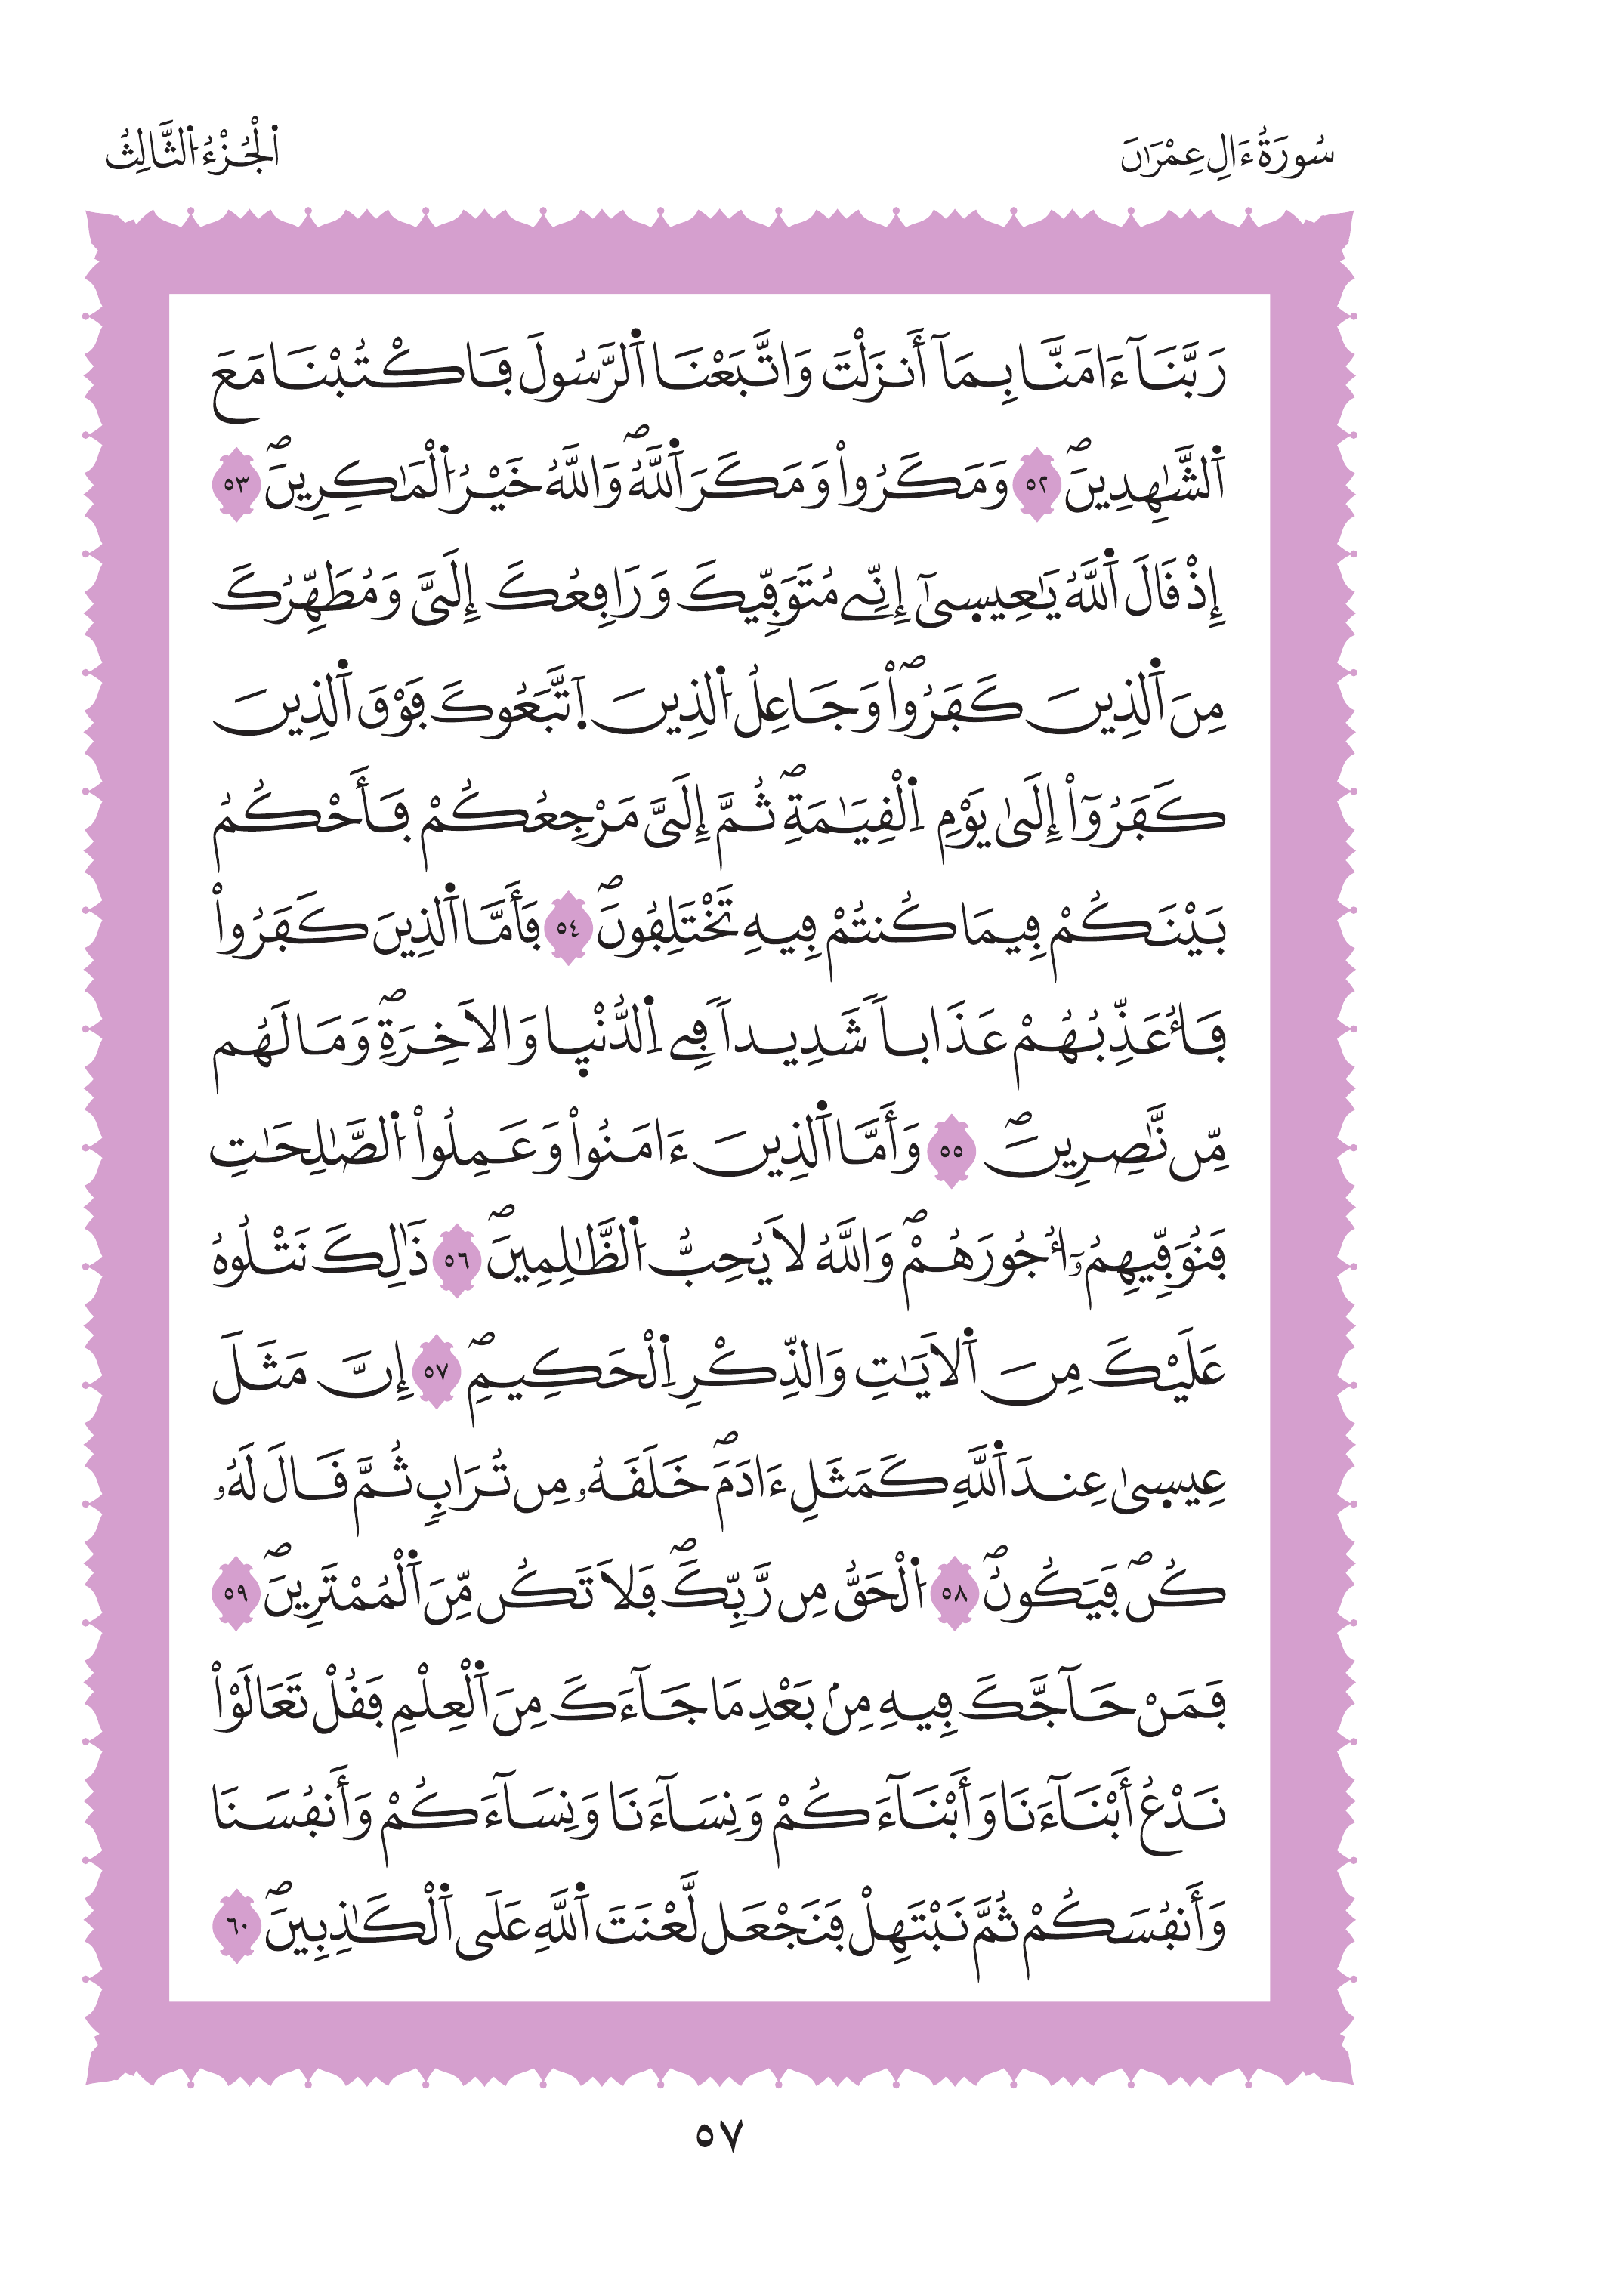 سُورَةُ ءَالِ عِمْرَٰنَ
اَ۬لْجُزْءُ اُ۬لثَّالِثُ
رَبَّنَآ ءَامَنَّا بِمَآ أَنزَلْتَ وَاتَّبَعْنَا اَ۬لرَّسُولَ فَاكْتُبْنَا مَعَ
اَ۬لشَّٰهِدِينَۖ ٥٢ وَمَكَرُواْ وَمَكَرَ اَ۬للَّهُۖ وَاللَّهُ خَيْرُ اُ۬لْمَٰكِرِينَۖ ٥٣
إِذْ قَالَ اَ۬للَّهُ يَٰعِيس۪ىٰٓ إِنِّے مُتَوَفِّيكَ وَرَافِعُكَ إِلَىَّ وَمُطَهِّرُكَ
مِنَ اَ۬لذِينَ كَفَرُواْۖ وَجَاعِلُ اُ۬لذِينَ اَ۪تَّبَعُوكَ فَوْقَ اَ۬لذِينَ
كَفَرُوٓاْ إِلَىٰ يَوْمِ اِ۬لْقِيَٰمَةِۖ ثُمَّ إِلَىَّ مَرْجِعُكُمْ فَأَحْكُمُ
بَيْنَكُمْ فِيمَا كُنتُمْ فِيهِ تَخْتَلِفُونَۖ ٥٤ فَأَمَّا اَ۬لذِينَ كَفَرُواْ
فَأُعَذِّبُهُمْ عَذَاباٗ شَدِيداٗ فِے اِ۬لدُّنْي۪ا وَالَاخِرَةِۖ وَمَا لَهُم
مِّن نَّٰصِرِينَۖ ٥٥ وَأَمَّا اَ۬لذِينَ ءَامَنُواْ وَعَمِلُواْ اُ۬لصَّٰلِحَٰتِ
فَنُوَفِّيهِمُۥٓ أُجُورَهُمْۖ وَاللَّهُ لَا يُحِبُّ اُ۬لظَّٰلِمِينَۖ ٥٦ ذَٰلِكَ نَتْلُوهُ
عَلَيْكَ مِنَ اَ۬لَايَٰتِ وَالذِّكْرِ اِ۬لْحَكِيمِۖ ٥٧ إِنَّ مَثَلَ
عِيس۪ىٰ عِندَ اَ۬للَّهِ كَمَثَلِ ءَادَمَۖ خَلَقَهُۥ مِن تُرَابٖ ثُمَّ قَالَ لَهُۥ
كُنۖ فَيَكُونُۖ ٥٨ اُ۬لْحَقُّ مِن رَّبِّكَۖ فَلَا تَكُن مِّنَ اَ۬لْمُمْتَرِينَۖ ٥٩
فَمَنْ حَآجَّكَ فِيهِ مِنۢ بَعْدِ مَا جَآءَكَ مِنَ اَ۬لْعِلْمِ فَقُلْ تَعَالَوْاْ
نَدْعُ أَبْنَآءَنَا وَأَبْنَآءَكُمْ وَنِسَآءَنَا وَنِسَآءَكُمْ وَأَنفُسَنَا
وَأَنفُسَكُمْ ثُمَّ نَبْتَهِلْ فَنَجْعَل لَّعْنَتَ اَ۬للَّهِ عَلَى اَ۬لْكَٰذِبِينَۖ ٦٠
٥٧